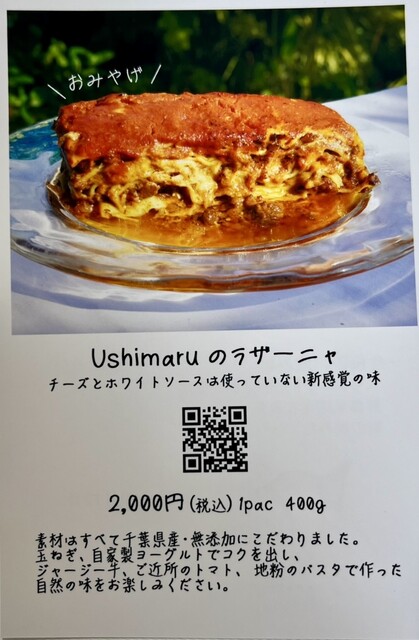 \おみやげ/
Ushimaru のラザーニャ
チーズとホワイトソースは使っていない新感覚の味
2,000円(税込) 1pac 400g
素材はすべて千葉県産・無添加にこだわりました。
玉ねぎ、自家製ヨーグルトでコクを出し、
ジャージー牛、ご近所のトマト、地粉のパスタで作った
自然の味をお楽しみください。